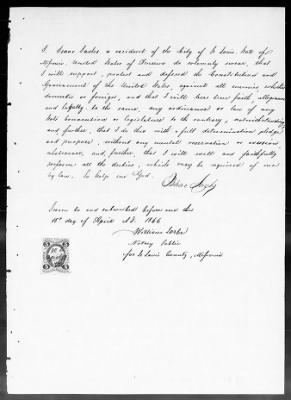 I, Isaac  a resident of the City of St Louis State of
Missouri, United States of America do solemnly swear, that
I will support, protect and defend the Constitution and
Government of the United States, against all enemies whether
domestic or foreign, and that I will bear true faith, allegiance
and loyalty to the same, any ordinance or law of any
State Convention or Legislature to the contrary, notwithstanding
and further, that I do this with a full determination pledge
and purpose, without any mental reservation or evasion
whatsoever, and further, that I will well and faithfully
perform all the duties, which may be required of me
by law. So help me God.
Isaac
Sworn to and subscribed before me this
18th day of April A.D. 1866
William
Notary Public
for St Louis County, Missouri
5 5